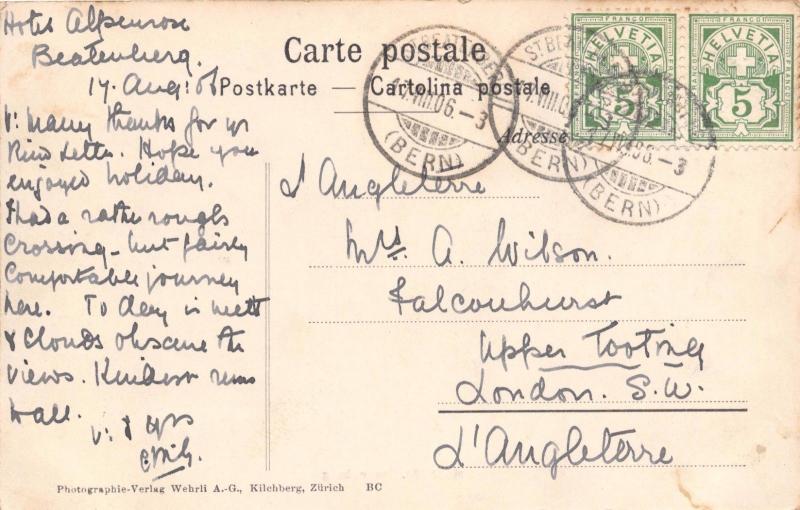 Hotel Alpenrose
Beatenberg.
17. Aug: 06
V: many thanks for yr
Kind Letter. Hope you
enjoyed holiday.
Had a rather rough
Crossing - but fairly
Comfortable journey
here. To day is wett
& Clouds obscure the
Views. Kindest rems
to all.
V: & yrs
Carte postale
Postkarte — Cartolina postale
Adresse
ST BEATENBERG
VIII.06.-3
(BERN)
ST BEATENBERG
VIII.0
(BERN)
06.-3
(BERN)
FRANCO
HELVETIA
5
FRANCO
HELVETIA
5
d'Angleterre
Mrs A. Wilson.
Falconhurst
Upper Tooting
London. S.W.
d'Angleterre
Photographie-Verlag Wehrli A.-G., Kilchberg, Zürich BC